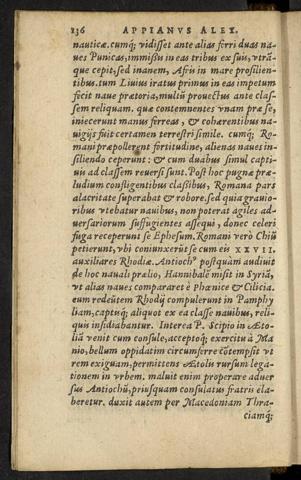 136 APPIANVS ALEX.
nauticæ. cumq́; vidisset ante alias ferri duas na-
ues Punicas, immissis in eas tribus ex suis, vtrã-
que cepit, sed inanem, Afris in mare prosilien-
tibus. tum Liuius iratus primus in eas impetum
fecit naue prætoria, multũ prouectus ante clas-
sem reliquam. quæ contemnentes vnam præ se,
iniecerunt manus ferreas, & cohærentibus na-
uigijs fuit certamen terrestri simile. cumq́; Ro-
mani præpollerent fortitudine, alienas naues in-
siliendo ceperunt: & cum duabus simul capti-
uis ad classem reuersi sunt. Post hoc pugnæ præ-
ludium confligentibus classibus, Romana pars
alacritate superabat & robore. sed quia grauio-
ribus vtebatur nauibus, non poterat agiles ad-
uersariorum suffugientes assequi, donec celeri
fuga receperunt se Ephesum. Romani verò Chiũ
petierunt, vbi coniunxerũt se cum eis XXVII.
auxiliares Rhodiæ. Antiochꝰ postquàm audiuit
de hoc nauali prælio, Hannibalẽ misit in Syriã,
vt alias naues compararet è Phœnice & Cilicia.
eum redeũtem Rhodij compulerunt in Pamphy
liam, captisq́; aliquot ex ea classe nauibus, reli-
quis insidiabantur. Interea P. Scipio in Æto-
liã venit cum consule, acceptoq́; exercitu à Ma
nio, bellum oppidatim circumferre cõtempsit vt
rem exiguam, permittens Ætolis rursum lega-
tionem in vrbem. maluit enim properare aduer
sus Antiochũ, priusquam consulatus fratris ela-
beretur. duxit autem per Macedoniam Thra-
ciamq́;